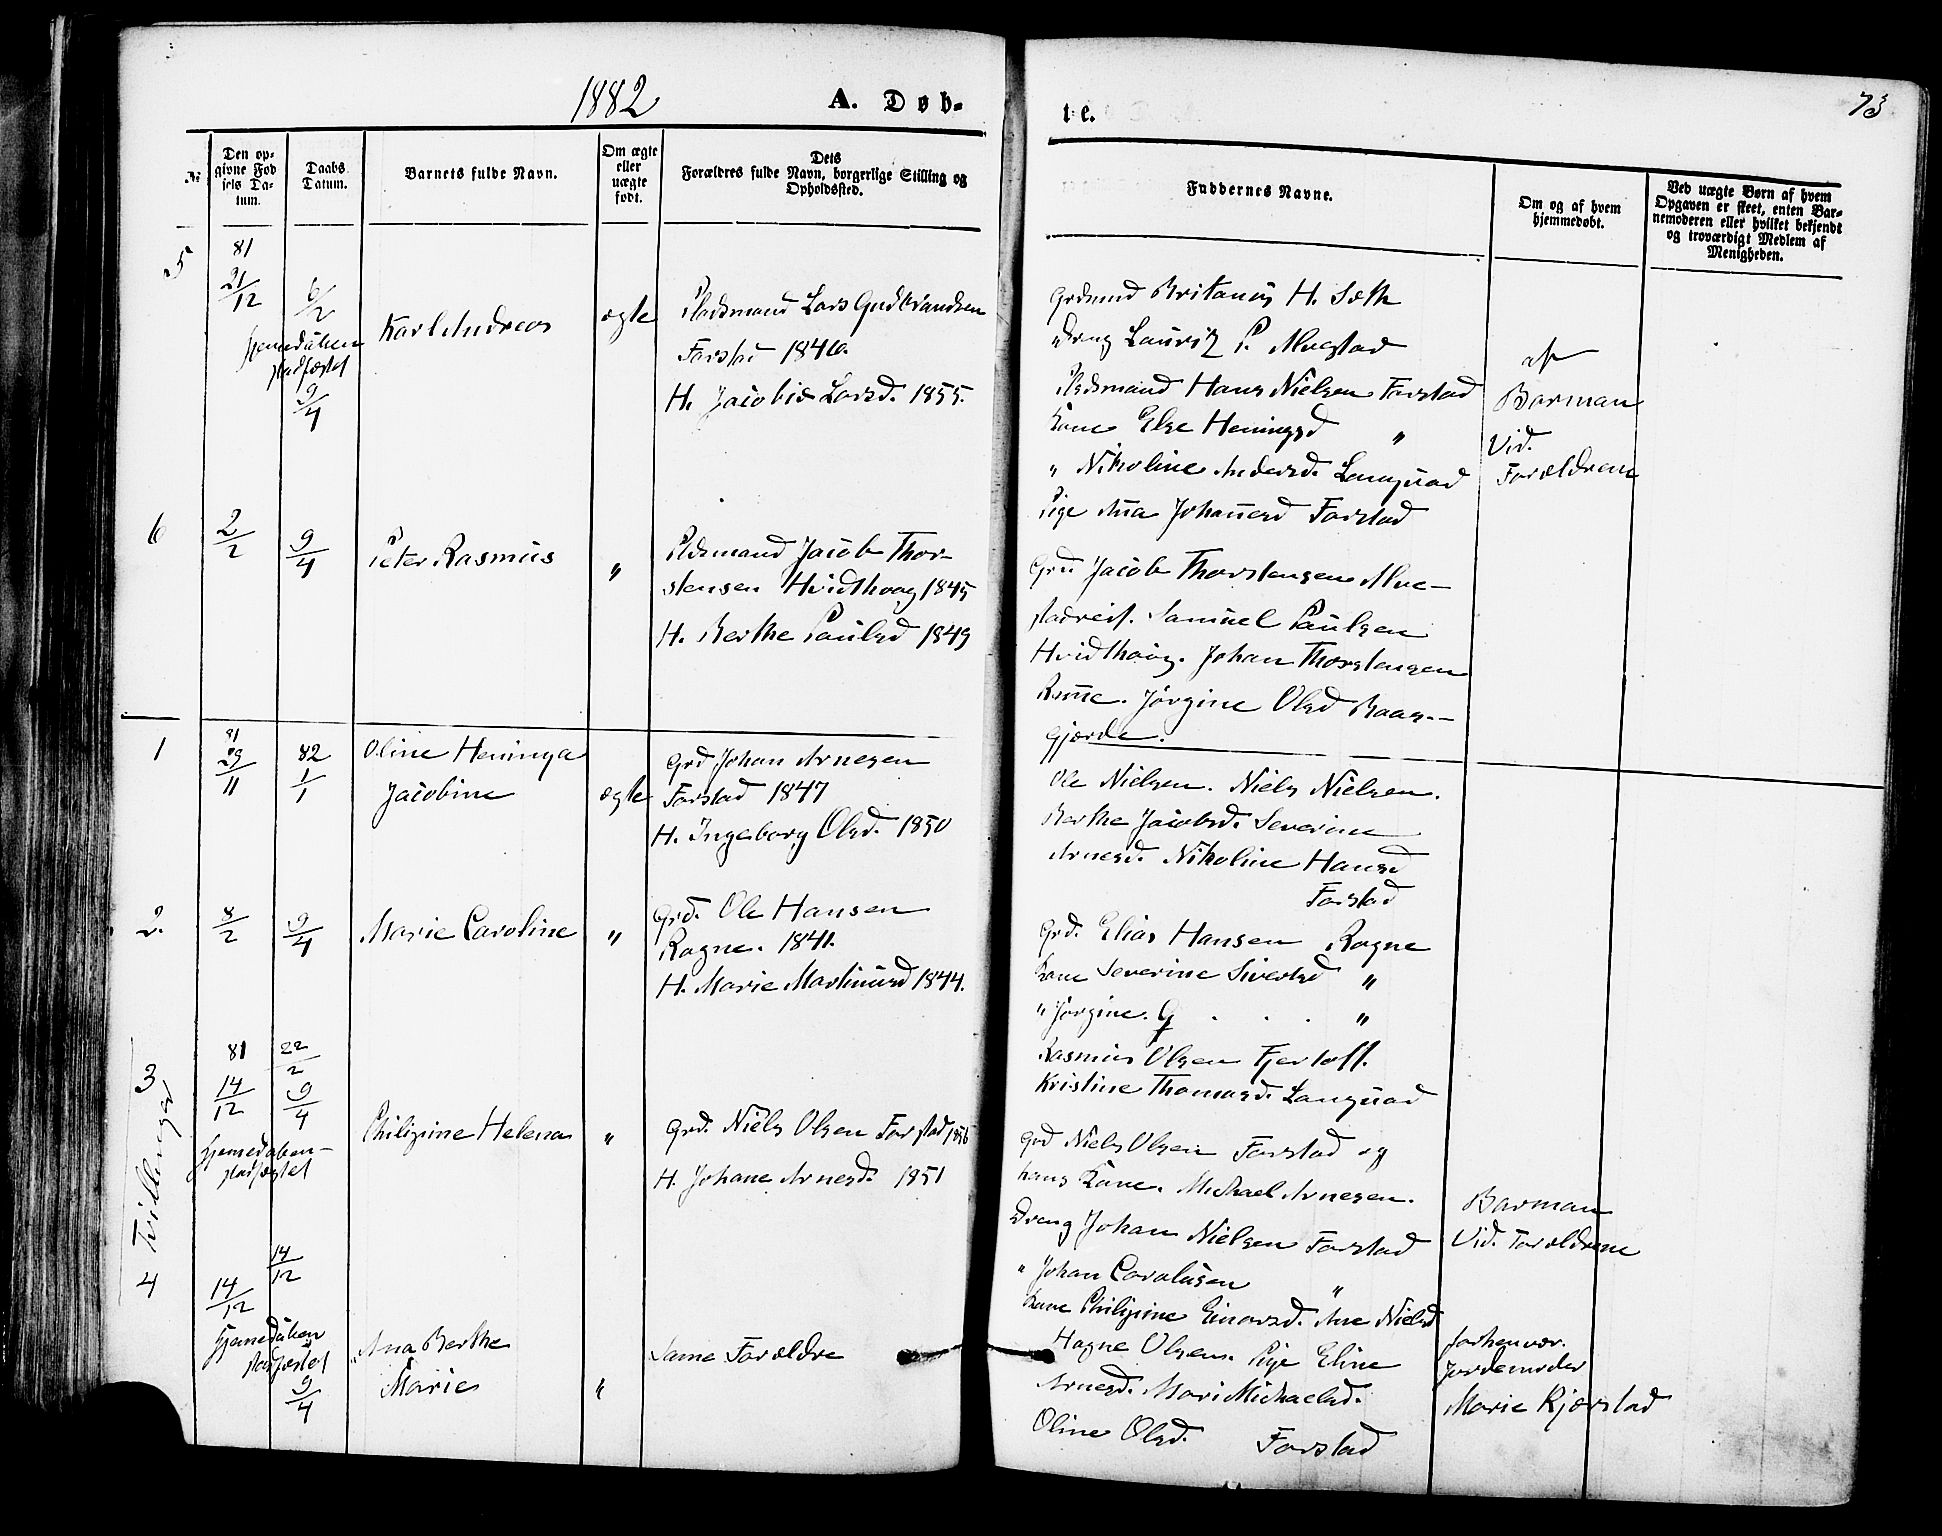 1882
A. Døb-
te.
73
№
Den op-
givne Fød
sels Da-
tum.
Daabs
Datum.
Barnets fulde Navn.
Om ægte
eller
uægte
født.
Dets
Forældres fulde Navn, borgerlige Stilling og
Opholdssted.
Fadderernes Navne.
Om og af hvem
hjemmedøbt.
Ved uægte Børn af hvem
Opgaven er skeet, enten Bar-
nemoderen eller hvilket bekjendt
og troværdigt Medlem af
Menigheden.
5
81
21/12
6/2
Hjemedåben
stadfæstet
9/4
Karl Andreas
ægte
Pladsmand Lars Gudbrandsen
1846.
H. Jacobie Larsd. 1855.
Grdmnd H. Sæth
Dreng Lauritz P. Alvestad
Pladsmand Hans Nielsen Farstad
Kone Else Heningsd "
" Nikoline Andersd. Langvad
Pige Ana Johansd Farstad
af
Barman
Vid.
Forældrene
6
2/2
9/4
Peter Rasmus
"
Pldsmand Jacob Thor-
stensen Hvidthoug 1845
H. Berthe Paulsd 1849
Grd Jacob Thorstensen Alve-
stadreit. Samuel Paulsen
Hvidthoug. Johan Thorstensen
Jørgine Olsd
gjærde.
1
81
29/11
82
1/1
Oline Heninga
Jacobine
ægte
Grd Johan Arnesen
Farstad 1847
H. Ingeborg Olsd. 1850
Ole Nielsen. Niels Nielsen.
Berthe Jacobsd. Severine
Arnesd. Nikoline Hansd
Farstad
2.
8/2
9/4
Marie Caroline
"
Grd. Ole Hansen
Rogne. 1841.
H. Marie Martinusd 1844.
Grd. Elias Hansen Rogne
Kone Severine Sivertsd "
" Jørgine. G . . . "
Rasmus Olsen Fjertoft.
Kristine Thomasd. Langvad
Tvillinger
3
81
14/12
22/2
9/4
Hjemedaaben
stadfæstet
Philipine Helena
"
Grd. Niels Olsen Farstad 1856
H. Johane Arnesd. 1851
Grd Niels Olsen Farstad og
hans Kone. Michael Arnesen.
Dreng Johan Nielsen Farstad
" Johan Carolusen "
Kone Philipine Einarsd. Ane Nielsd
Barman
Vid. Forældrene
4
14/12
14/12
Hjemedåben
stadfæstet
9/4
Ana Berthe
Marie
"
Same Forældre
Hagne Olsen. Pige Eline
Arnesd. Mari Michaelsd.
Oline Olsd. Farstad
forhenvær.
Jordemoder
Marie Kjærstad